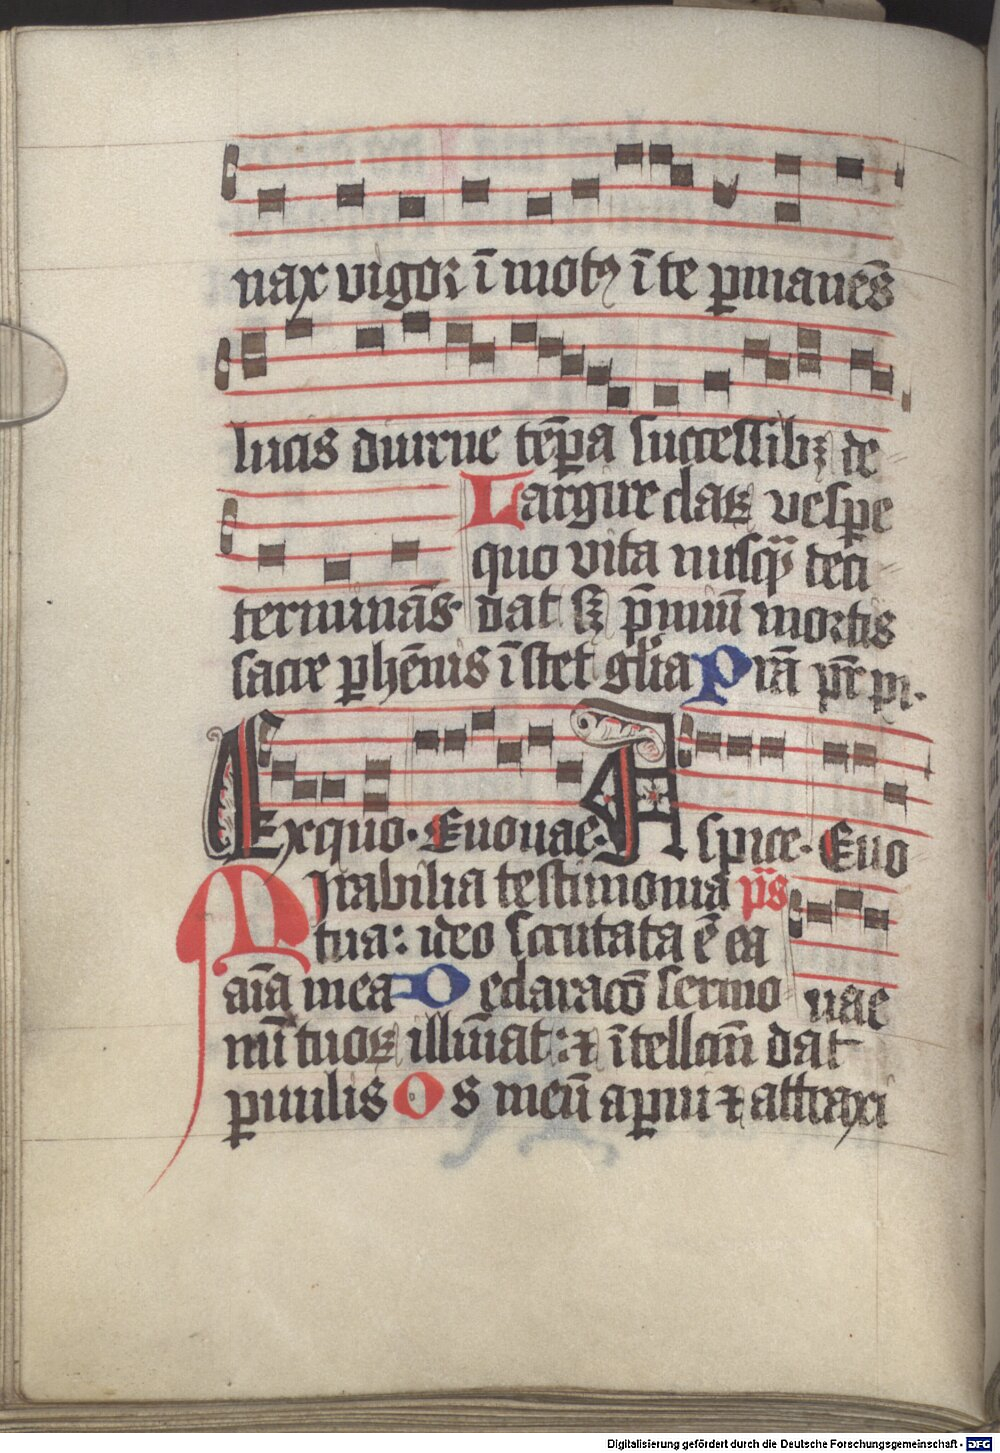 nax vigor ī motꝰ ī te ꝑmanēs
lucis diurne tēꝑa successibꝫ de
Largire claꝝ vespe
quo vita nusqᷓ deci
terminās. dat sꝫ p̄miū mortis
sacre ꝑhēnis īstet gl̄ia Prā pr̄ pi.
Ex quo. Euouae. Aspice. Euo
Mirabilia testimonia p̄s
tua: ideo scrutata ē ea
aīa mea Declaracō sermo uae
nū tuoꝝ illūīat: ⁊ ītellcm̄ dat
ꝑuulis Os meū aꝑui ⁊ attraxi
Digitalisierung gefördert durch die Deutsche Forschungsgemeinschaft - DFG